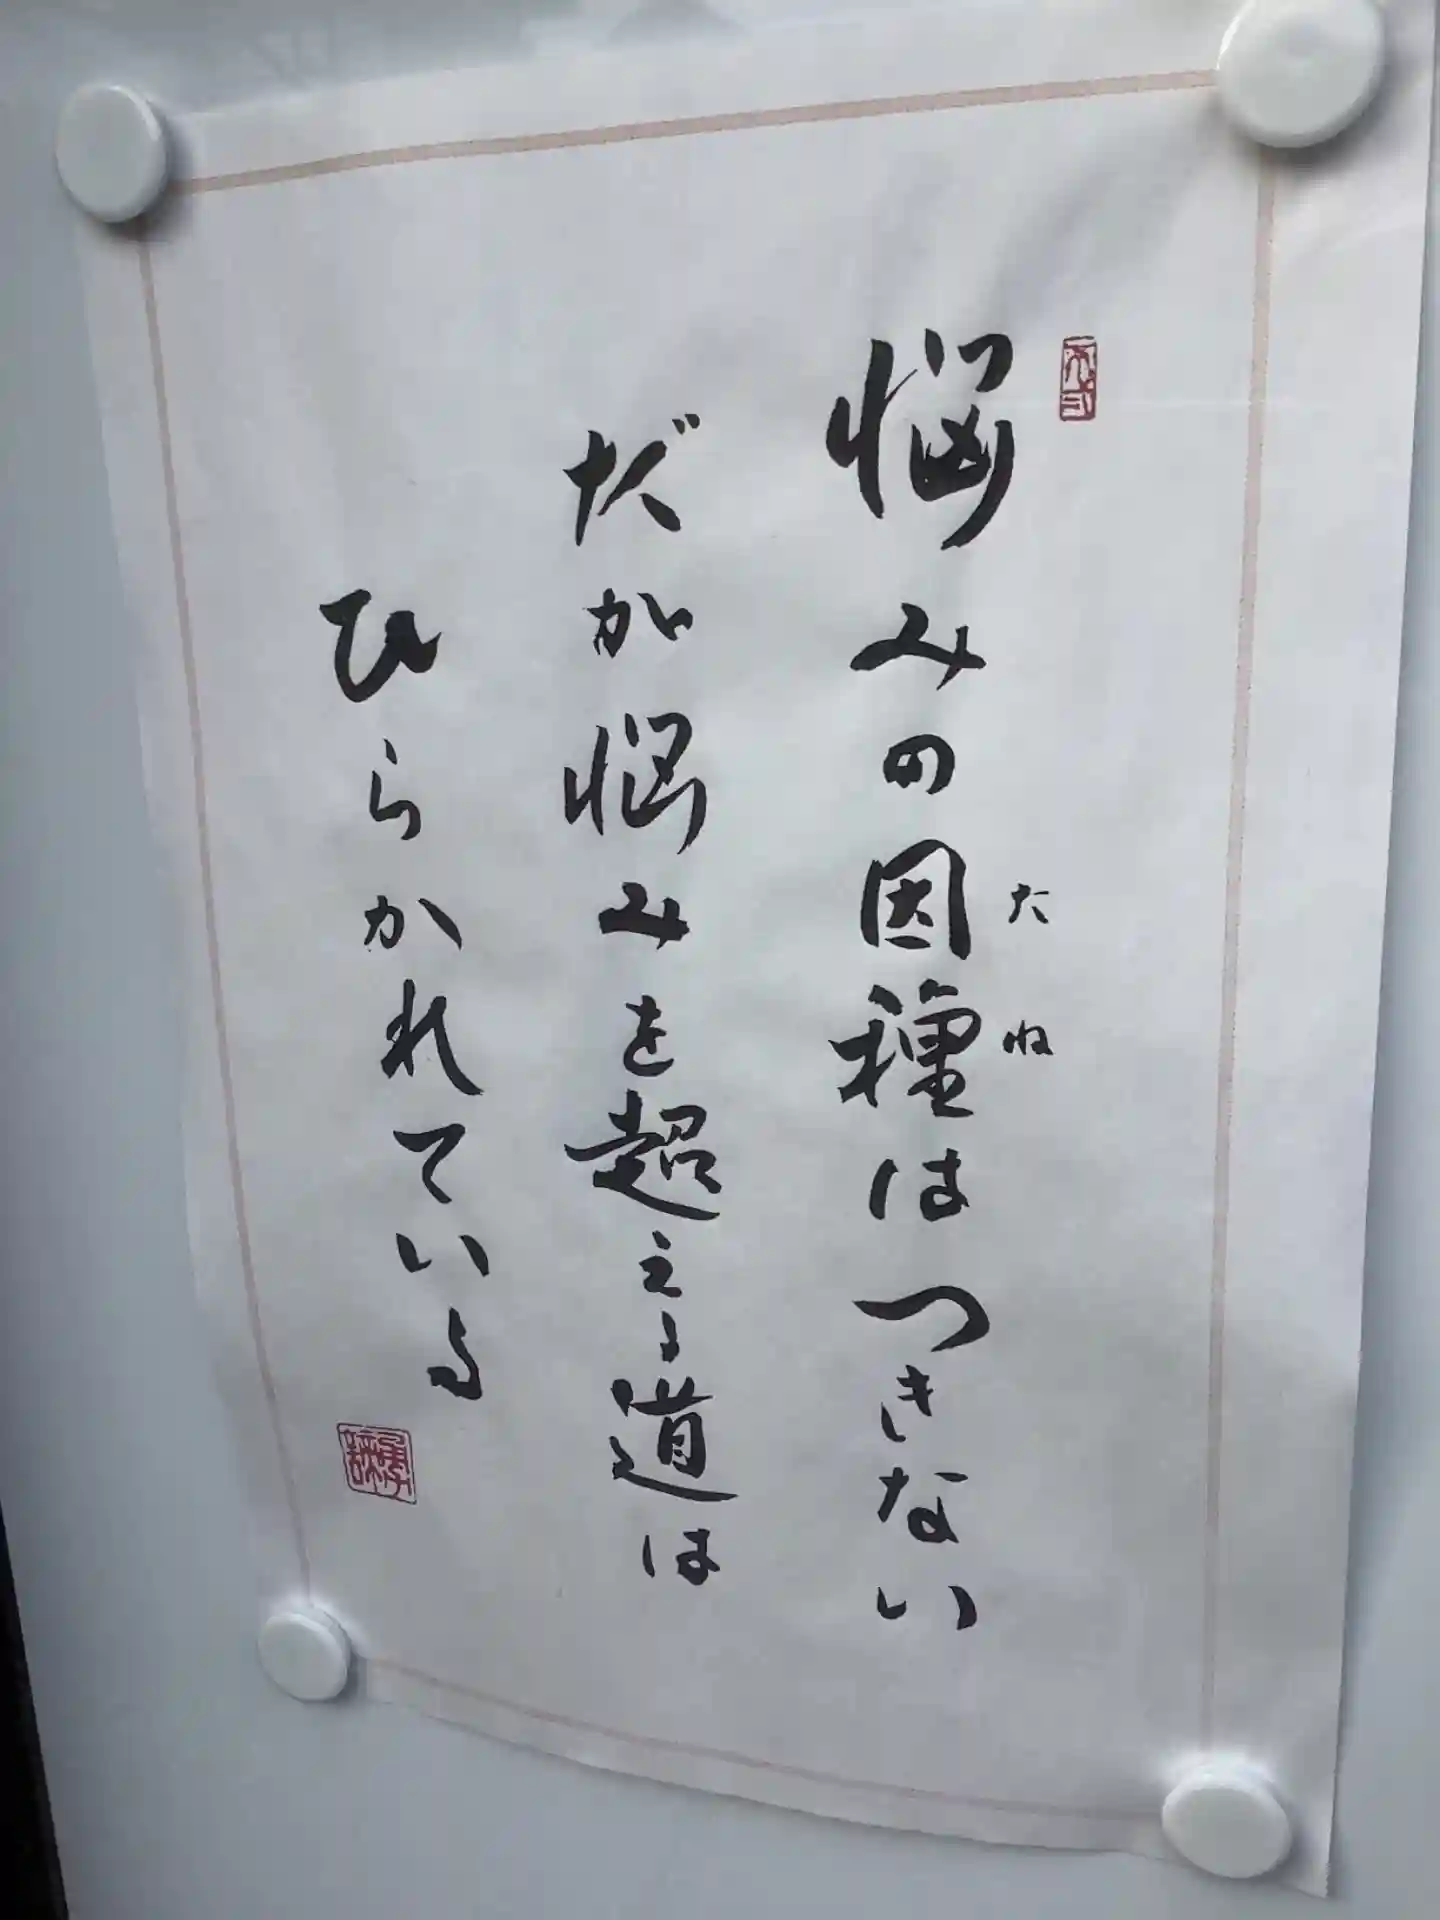 悩みの因種はつきない
たね
だが悩みを超える道は
ひらかれている